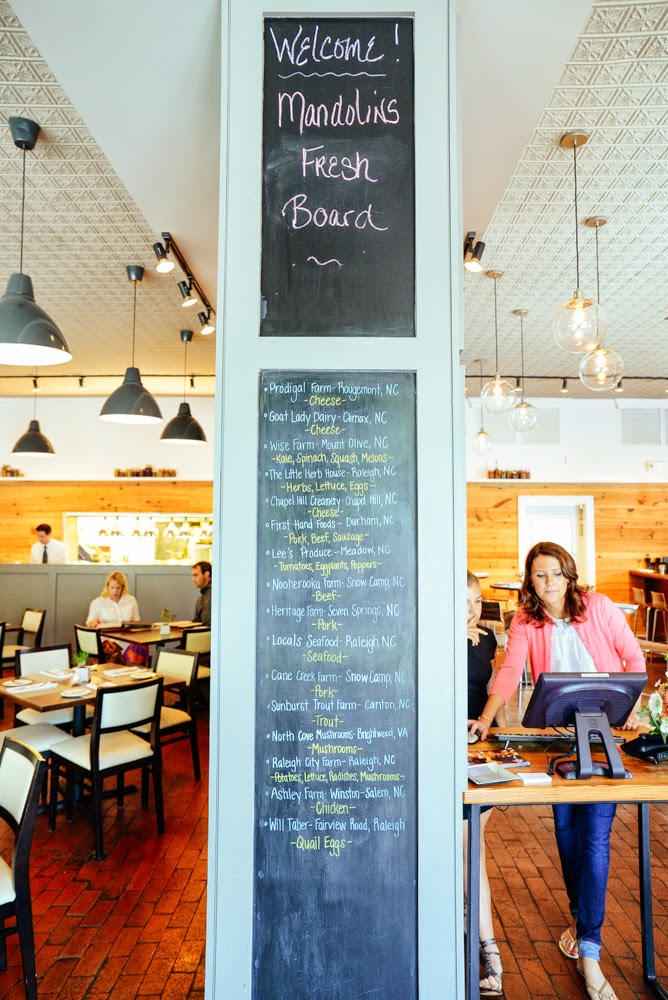 Welcome!
Mandolins
Fresh
Board
Prodigal Farm - Rougemont, NC
- Cheese -
Goat Lady Dairy - Climax, NC
- Cheese -
Wise Farm - Mount Olive, NC
- Kale, Spinach, Squash, Melons -
The Little Herb House - Raleigh, NC
- Herbs, Lettuce, Eggs -
Chapel Hill Creamery - Chapel Hill, NC
- Cheese -
First Hand Foods - Durham, NC
- Pork, Beef, Sausage -
Lee's Produce - Meadow, NC
- Tomatoes, Eggplants, Peppers -
Nooherooka Farm - Snow Camp, NC
- Beef -
Heritage Farm - Seven Springs, NC
- Pork -
Locals Seafood - Raleigh, NC
- Seafood -
Cane Creek Farm - Snow Camp, NC
- Pork -
Sunburst Trout Farm - Canton, NC
- Trout -
North Cove Mushrooms - Brightwood, VA
- Mushrooms -
Raleigh City Farm - Raleigh, NC
- Potatoes, Lettuce, Radishes, Mushrooms -
Ashley Farm - Winston-Salem, NC
- Chicken -
Will Taber - Fairview Road, Raleigh
- Quail Eggs -